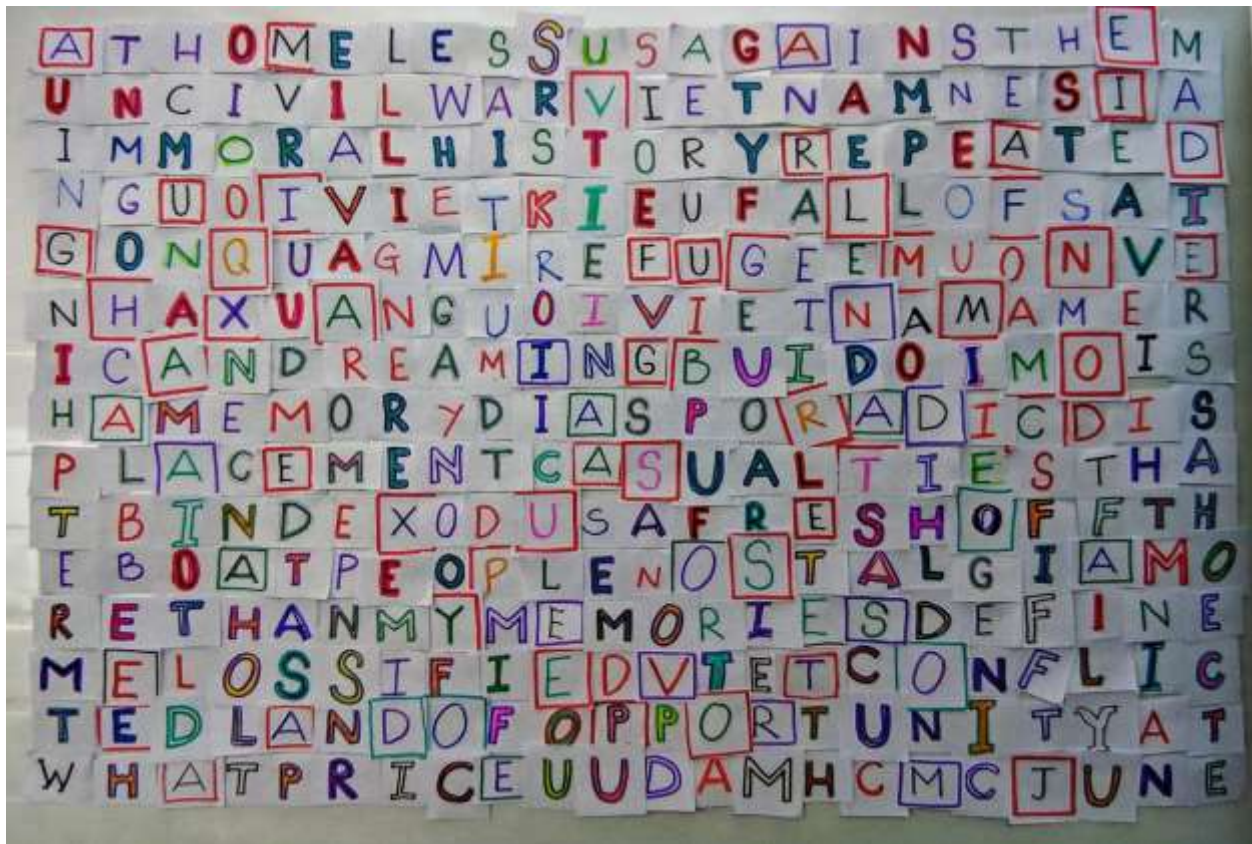 ATHOMELESSUSAGAINSTHEM
UNCIVILWARVIETNAMNESIA
IMMORALHISTORYREPEATED
NGUOIVIETKIEUFALLOFSAI
GONQUAGMIREFUGEEMUONVE
NHAXUANGUOIVIETNAMAMER
ICANDREAMINGBUIDOIMOIS
HAMEMORYDIASPORADICDIS
PLACEMENTCASUALTIESTHA
TBINDEXODUSAFRESHOFFTH
EBOATPEOPLENOSTALGIAMO
RETHANMYMEMORIESDEFINE
MELOSSIFIEDVTETCONFLIC
TEDLANDOFOPPORTUNITYAT
WHATPRICEUUDAMHCMCJUNE